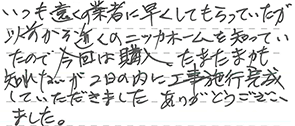 いつも遠くの業者に早くしてもらっていたが
以前から近くのニッカホームを知ってい
たので今回は購入。たまたまかも
知れないが2日の内に工事施行完成
していただきました ありがとうござい
ました。